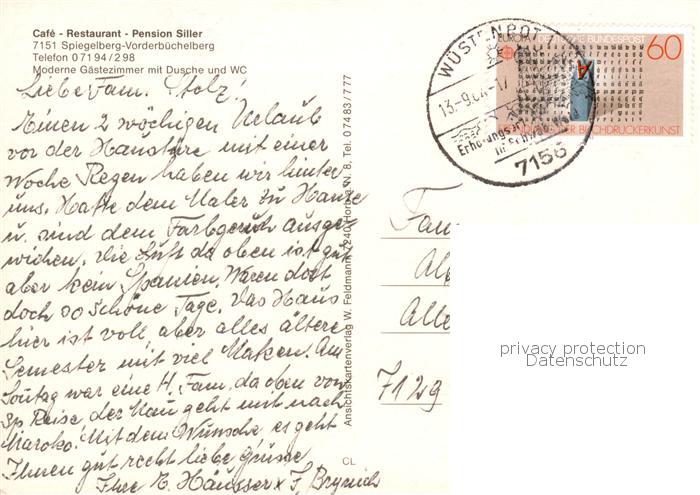 Café - Restaurant - Pension Siller
7151 Spiegelberg-Vorderbüchelberg
Telefon 0 71 94 / 2 98
Moderne Gästezimmer mit Dusche und WC
Liebe Fam. Stolz!
Einen 2 wöchigen Urlaub
vor der Haustüre mit einer
Woche Regen haben wir hinter
uns. Hatte dem Maler zu Hause
u. sind dem Farbgeruch ausge-
wichen. Die Luft da oben ist gut
aber kein Spanien. Waren doch
doch so schöne Tage. Das Haus
hier ist voll, aber alles ältere
Semester mit viel Macken. Am
Sontag war eine H. Fam. da oben von
Sp Reise, der geht mit nach
Maroko! Mit dem Wunsche es geht
Ihnen gut recht liebe Grüsse
Ihre E. Häusser
CL
Ansichtskartenverlag W. Feldmann, 7240 Horb a. N. 8, Tel. 0 74 83 / 7 77
WÜSTENROT
13.-9.84.-17
Erholungsort
7156
EUROPA DEUTSCHE BUNDESPOST
60
BUCHDRUCKERKUNST
Fam
Alle
7129
privacy protection
Datenschutz